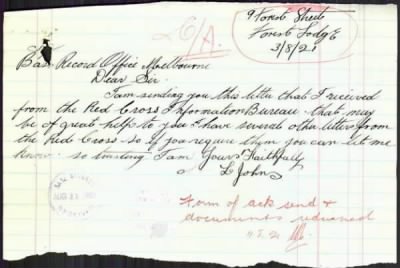 9 Forest Street
Forest Lodge
3/8/21
Base Record Office Melbourne
Dear Sir
I am sending you this letter that I recieved
from the Red Cross Information Bureau that may
be of great help to you I have several other letters from
the Red Cross so if you require them you can let me
know. so trusting I am Yours Faithfully
L Johns
Form of ack send &
documents returned